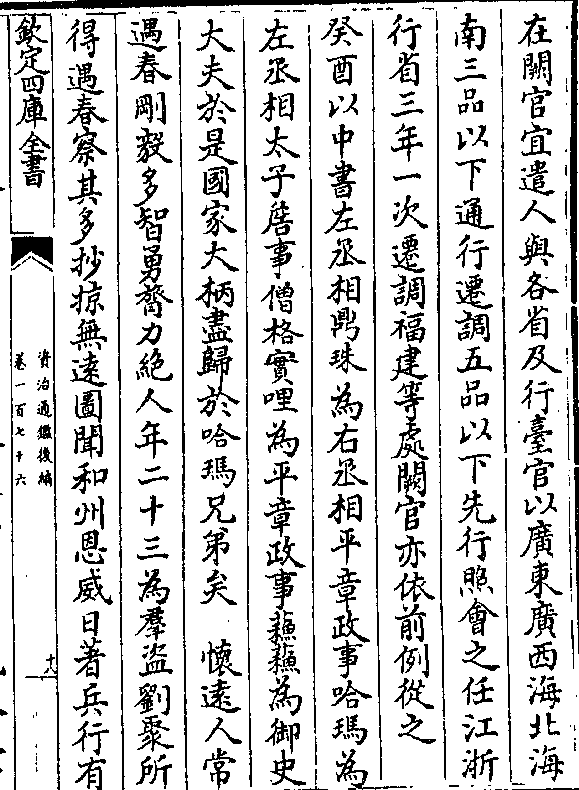 在闕官宜遣人與各省及行臺官以廣東廣西海北海
南三品以下通行遷調五品以下先行照會之任江浙
行省三年一次遷調福建等處闕官亦依前例從之
癸酉以中書左丞相鼎珠為右丞相平章政事哈瑪為
左丞相太子詹事僧格實哩為平章政事蘓蘓為御史
大夫於是國家大柄盡歸於哈瑪兄弟矣 懷遠人常
遇春剛毅多智勇膂力絶人年二十三為羣盗劉聚所
得遇春察其多抄掠無逺圖聞和州恩威日著兵行有
欽定四庫全書
資治通鑑後編
卷一百七十六
十八